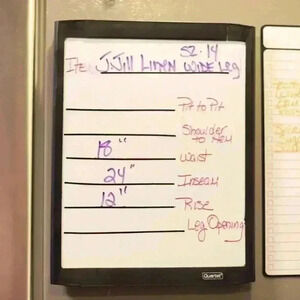 SZ. 14
Item J.Jill Linen Wide Leg
Pit to Pit
Shoulder to Hem
18" Waist
24" Inseam
12" Rise
Leg Opening
Quartet